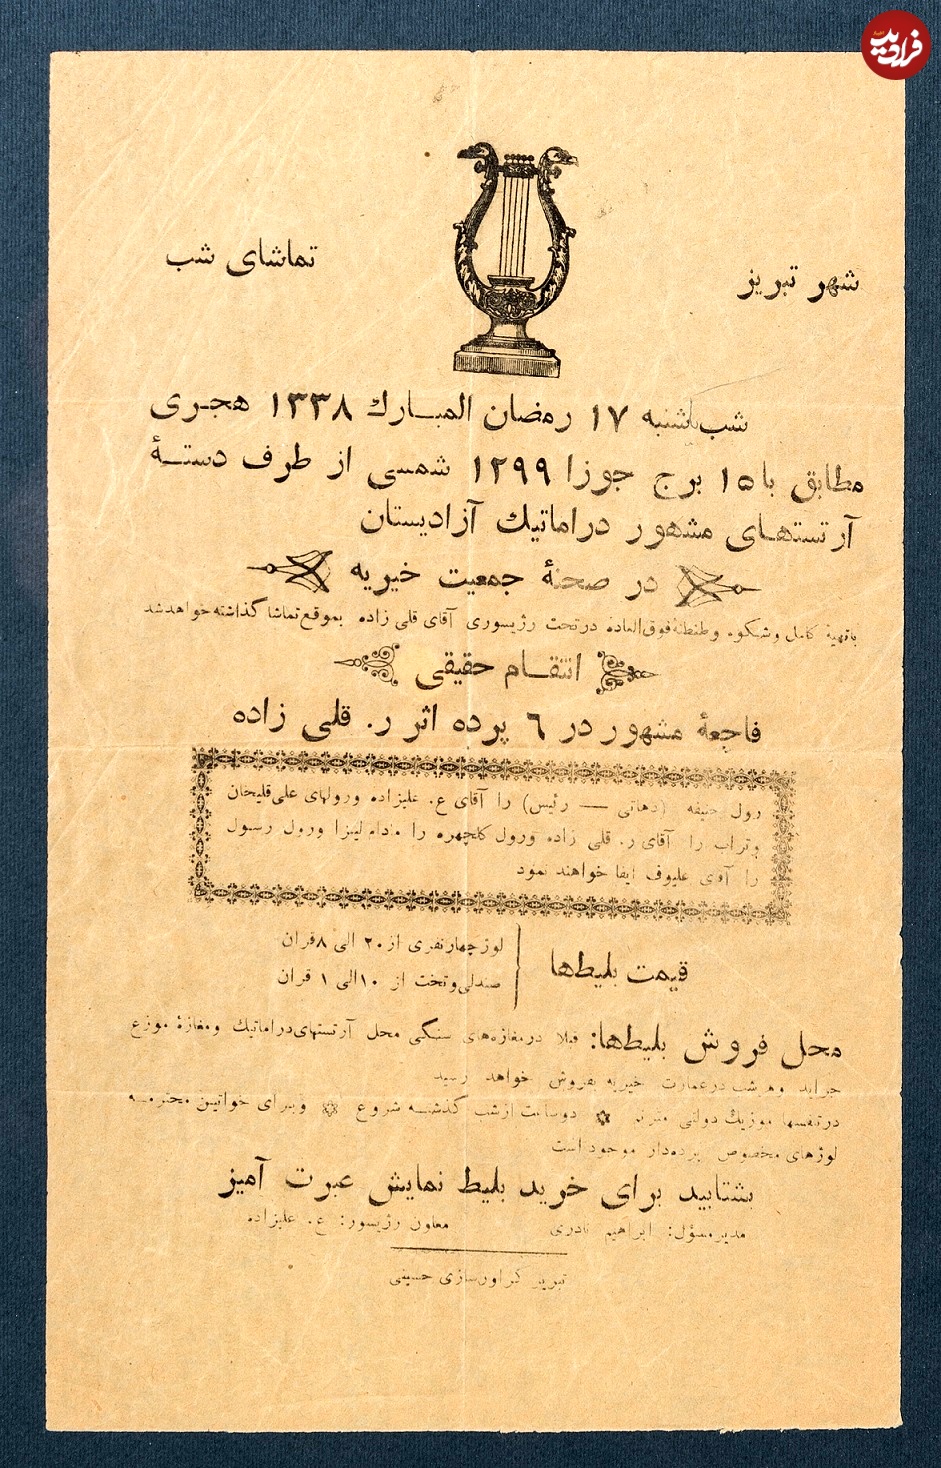 فرادید
شهر تبریز
تماشای شب
شب یکشنبه ۱۷ رمضان المبارك ۱۳۳۸ هجری
مطابق با ۱۵ برج جوزا ۱۲۹۹ شمسی از طرف دستهٔ
آرتستهای مشهور دراماتیك آزادیستان
در صحنهٔ جمعیت خیریه
باتهیهٔ کامل وشکوه وطنطنهٔ فوق‌العاده درتحت رژیسوری آقای قلی زاده بموقع تماشا گذاشته خواهد شد
انتقام حقیقی
فاجعهٔ مشهور در ٦ پرده اثر ر. قلی زاده
رول حنیفه (دهاتی — رئیس) را آقای ع. علیزاده ورولهای علی‌قلیخان
وتراب را آقای ر. قلی زاده ورول گلچهره را مادام لیزا ورول رسول
را آقای علیوف ایفا خواهند نمود
قیمت بلیط‌ها
لوژ چهارنفری از ۲۰ الی ۸ قران
صندلی وتخت از ۱۰ الی ۱ قران
محل فروش بلیط‌ها: قبلا در مغازه‌های سنگی محل آرتستهای دراماتیك ومغازهٔ موزع
جراید وهرشب درعمارت خیریه بفروش خواهد رسید
درتنفسها موزیك دولتی مترنم دوساعت ازشب گذشته شروع وبرای خواتین محترمه
لوژهای مخصوص پرده‌دار موجود است
بشتابید برای خرید بلیط نمایش عبرت آمیز
مدیر مسؤل: ابراهیم نادری
معاون رژیسور: ع. علیزاده
تبریز گراورسازی حسینی